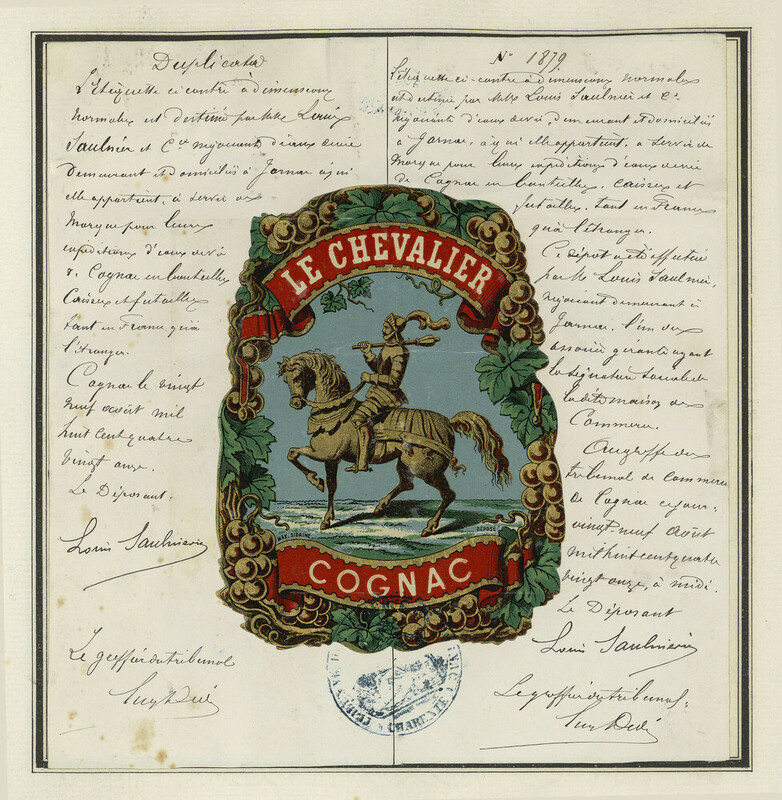 Duplicata
L'étiquette ci contre à dimensions
normales est destinée par MMrs Louis
Saulnier et Cie négociants d'eaux de vie
demeurant et domiciliés à Jarnac à qui
elle appartient, à servir de
Marque pour leurs
expéditions d'eaux de vie
de Cognac en bouteilles
Caisses et futailles
tant en France qu'à
l'étranger.
Cognac le vingt
neuf août mil
huit cent quatre
vingt onze.
Le Déposant,
Louis Saulnier
Le greffier du tribunal
N° 1879.
L'étiquette ci-contre à dimensions normales
est destinée par MMrs Louis Saulnier et Cie
négociants d'eaux de vie, demeurant et domiciliés
à Jarnac, à qui elle appartient, à servir de
Marque pour leurs expéditions d'eaux de vie
de Cognac en bouteilles, caisses et
futailles, tant en France
qu'à l'étranger.
Ce dépôt a été effectué
par M. Louis Saulnier,
négociant demeurant à
Jarnac, l'un des
associés gérants ayant
la signature sociale de
la dite maison de
Commerce.
Au greffe du
tribunal de commerce
de Cognac ce jour,
vingt-neuf août
mil huit cent quatre
vingt onze, à midi.
Le Déposant
Louis Saulnier
Le greffier du tribunal,
LE CHEVALIER
DÉPOSÉ
COGNAC
CHARENTE